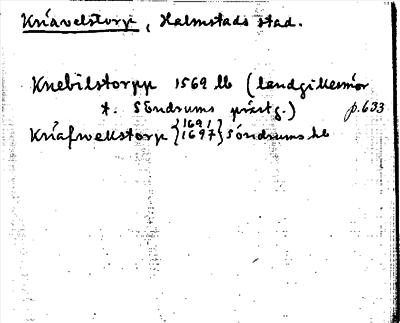 Knävelstorp, Halmstads stad.
Knebilstorpp 1569 lb (landgillesmör
t. Söndrums prästg.) p. 633
Knäfwelstorp {1691 1697} Söndrums lb